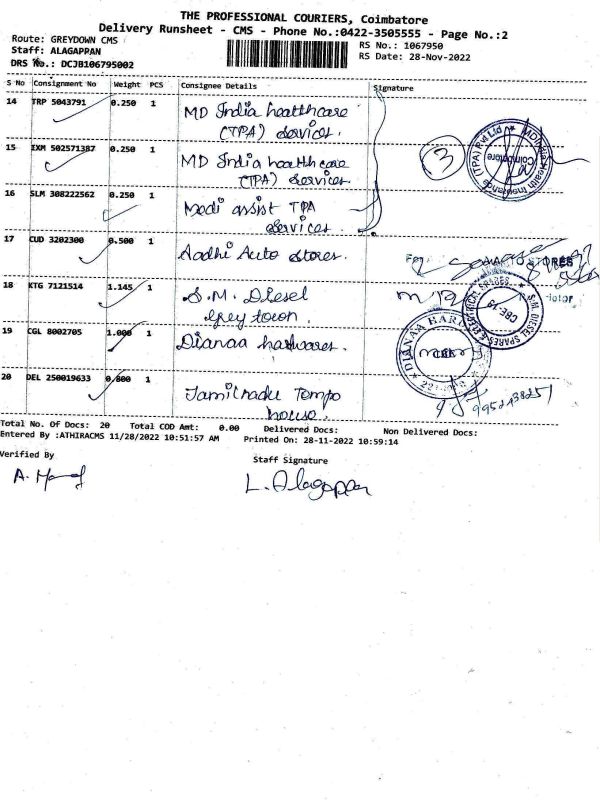 THE PROFESSIONAL COURIERS, Coimbatore
Delivery Runsheet - CMS - Phone No.:0422-3505555 - Page No.:2
Route: GREYDOWN CMS
RS No.: 1067950
Staff: ALAGAPPAN
RS Date: 28-Nov-2022
DRS No.: DCJB106795002
S No Consignment No Weight PCS Consignee Details Signature
14 TRP 5043791 0.250 1 MD India healthcare
(TPA) services.
15 IXM 502571387 0.250 1 MD India health care
(TPA) services
16 SLM 308222562 0.250 1 Medi assist TPA
services.
17 CUD 3202300 0.500 1 Aadhi Auto stores.
18 KTG 7121514 1.145 1 S.M. Diesel
Grey town.
19 CGL 8002705 1.000 1 Dianaa hardwares.
20 DEL 250019633 0.800 1 Tamilnadu Tempo
house.
3
MDIndia Health Insurance (TPA) Pvt Ltd
Coimbatore
For
AUTO STORES
S.M. DIESEL SPARES
CBE-18
DIANAA HARD
CBE
9952438251
Total No. Of Docs: 20 Total COD Amt: 0.00 Delivered Docs: Non Delivered Docs:
Entered By :ATHIRACMS 11/28/2022 10:51:57 AM Printed On: 28-11-2022 10:59:14
Verified By
Staff Signature
L. Alagappan